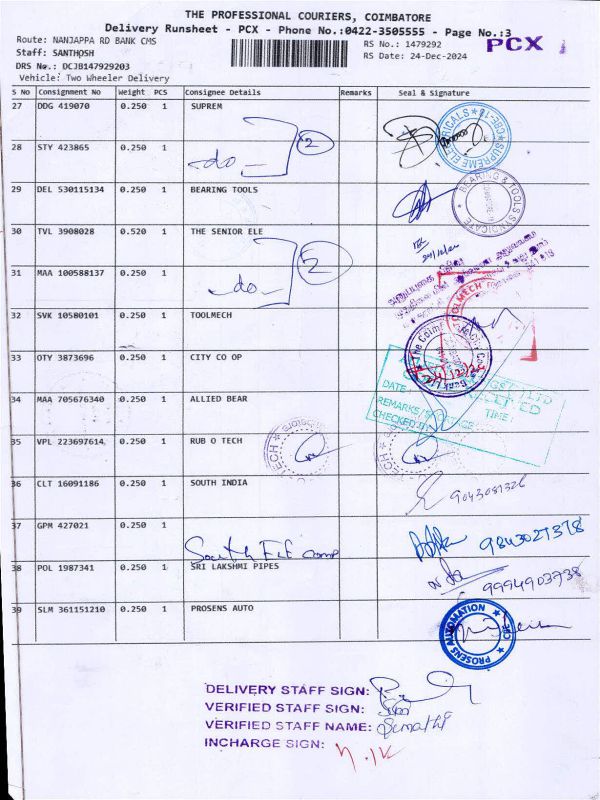 THE PROFESSIONAL COURIERS, COIMBATORE
Delivery Runsheet - PCX - Phone No.:0422-3505555 - Page No.:3
Route: NANJAPPA RD BANK CMS
RS No.: 1479292
PCX
Staff: SANTHOSH
RS Date: 24-Dec-2024
DRS No.: DCJB147929203
Vehicle: Two Wheeler Delivery
S No Consignment No Weight PCS Consignee Details Remarks Seal & Signature
27 DDG 419070 0.250 1 SUPREM
SUPREME ELECTRICALS CBE-18
28 STY 423865 0.250 1
-do- 2
29 DEL 530115134 0.250 1 BEARING TOOLS
BEARING & TOOLS SYNDICATE
30 TVL 3908028 0.520 1 THE SENIOR ELE
31 MAA 100588137 0.250 1
-do- 2
32 SVK 10580101 0.250 1 TOOLMECH
33 OTY 3873696 0.250 1 CITY CO OP
34 MAA 705676340 0.250 1 ALLIED BEAR
DATE:
RECEIVED
REMARKS/S
TIME:
CHECKED BY
35 VPL 223697614 0.250 1 RUB O TECH
36 CLT 16091186 0.250 1 SOUTH INDIA
9043081326
37 GPM 427021 0.250 1
South Ele Comp
9843027378
38 POL 1987341 0.250 1 SRI LAKSHMI PIPES
9994903738
39 SLM 361151210 0.250 1 PROSENS AUTO
PROSENS AUTOMATION CBE
DELIVERY STAFF SIGN:
VERIFIED STAFF SIGN:
VERIFIED STAFF NAME: Sumathi
INCHARGE SIGN: